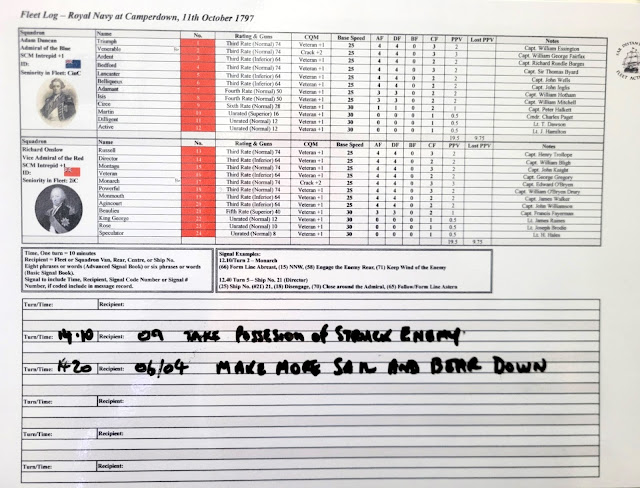 Fleet Log – Royal Navy at Camperdown, 11th October 1797
Squadron Name No. Rating & Guns CQM Base Speed AF DF BF CF PPV Lost PPV Notes
Adam Duncan
Admiral of the Blue
SCM Intrepid +1
ID:
Seniority in Fleet: CinC
Triumph 1 Third Rate (Normal) 74 Veteran +1 25 4 4 0 3 2 Capt. William Essington
Venerable 2 Third Rate (Normal) 74 Veteran +1 25 4 4 0 3 Capt. William George Fairfax
Ardent 3 Third Rate (Inferior) 64 Veteran +1 25 4 4 0 2 Capt. Richard Rundle Burges
Bedford 4 Third Rate (Normal) 74 Crack +2 25 4 4 0 3 Capt. Sir Thomas Byard
Lancaster Third Rate (Inferior) 64 Veteran +1 25 4 4 0 2 Capt. John Wells
Belliqueux Third Rate (Inferior) 64 Veteran +1 25 4 4 0 2 Capt. John Inglis
Adamant Fourth Rate (Normal) 50 Veteran +1 25 3 3 0 2 Capt. William Hotham
Isis Fourth Rate (Normal) 50 Veteran +1 25 3 3 0 2 Capt. William Mitchell
Circe Sixth Rate (Normal) 28 Veteran +1 30 1 1 0 2 1 Capt. Peter Halkett
Martin Unrated (Superior) 16 Veteran +1 30 0 0 0 1 0.5 Cmdr. Charles Paget
Diligent Unrated (Normal) 12 Veteran +1 30 0 0 0 1 0.5 Lt. T. Dawson
Active Unrated (Normal) 12 Veteran +1 30 0 0 0 1 0.5 Lt. J. Hamilton
19.5 9.75
Squadron Name No. Rating & Guns CQM Base Speed AF DF BF CF PPV Lost PPV Notes
Richard Onslow
Vice Admiral of the Red
SCM Intrepid +1
ID:
Seniority in Fleet: 2iC
Russell Third Rate (Normal) 74 Veteran +1 25 4 4 0 3 Capt. Henry Trollope
Director Third Rate (Inferior) 64 Veteran +1 25 4 4 0 2 Capt. William Bligh
Montagu Third Rate (Normal) 74 Veteran +1 25 4 4 0 3 Capt. John Knight
Veteran Third Rate (Inferior) 64 Veteran +1 25 4 4 0 2 Capt. George Gregory
Monarch Third Rate (Normal) 74 Crack +2 25 4 4 0 3 Capt. Edward O'Bryen
Powerful Third Rate (Normal) 74 Veteran +1 25 4 4 0 3 Capt. William O'Bryen Drury
Monmouth Third Rate (Inferior) 64 Veteran +1 25 4 4 0 2 Capt. James Walker
Agincourt Third Rate (Inferior) 64 Veteran +1 25 4 4 0 2 Capt. John Williamson
Beaulieu Fifth Rate (Superior) 40 Veteran +1 30 3 3 0 2 1 Capt. Francis Fayerman
King George Unrated (Normal) 12 Veteran +1 30 0 0 0 1 0.5 Lt. James Rains
Rose Unrated (Normal) 10 Veteran +1 30 0 0 0 1 0.5 Lt. Joseph Brodie
Speculator Unrated (Normal) 8 Veteran +1 30 0 0 0 1 0.5 Lt. H. Hales
19.5 9.75
Time, One turn = 10 minutes
Recipient = Fleet or Squadron Van, Rear, Centre, or Ship No.
Eight phrases or words (Advanced Signal Book) or six phrases or words
(Basic Signal Book).
Signal to include Time, Recipient, Signal Code Number or Signal #
Number, if coded include in message record.
Signal Examples:
12.10/Turn 2 – Monarch
(66) Form Line Abreast, (15) NNW, (58) Engage the Enemy Rear, (71) Keep Wind of the Enemy
12.40 Turn 5 – Ship No. 21 (Director)
(25) Ship No. (#21) 21, (18) Disengage, (70) Close around the Admiral, (65) Follow/Form Line Astern
Turn/Time: Recipient:
Turn/Time: 14.10 Recipient: 09 TAKE POSSESION of STRUCK ENEMY
Turn/Time: 1420 Recipient: 06/04 MAKE MORE SAIL AND BEAR DOWN
Turn/Time: Recipient:
Turn/Time: Recipient:
Turn/Time: Recipient: